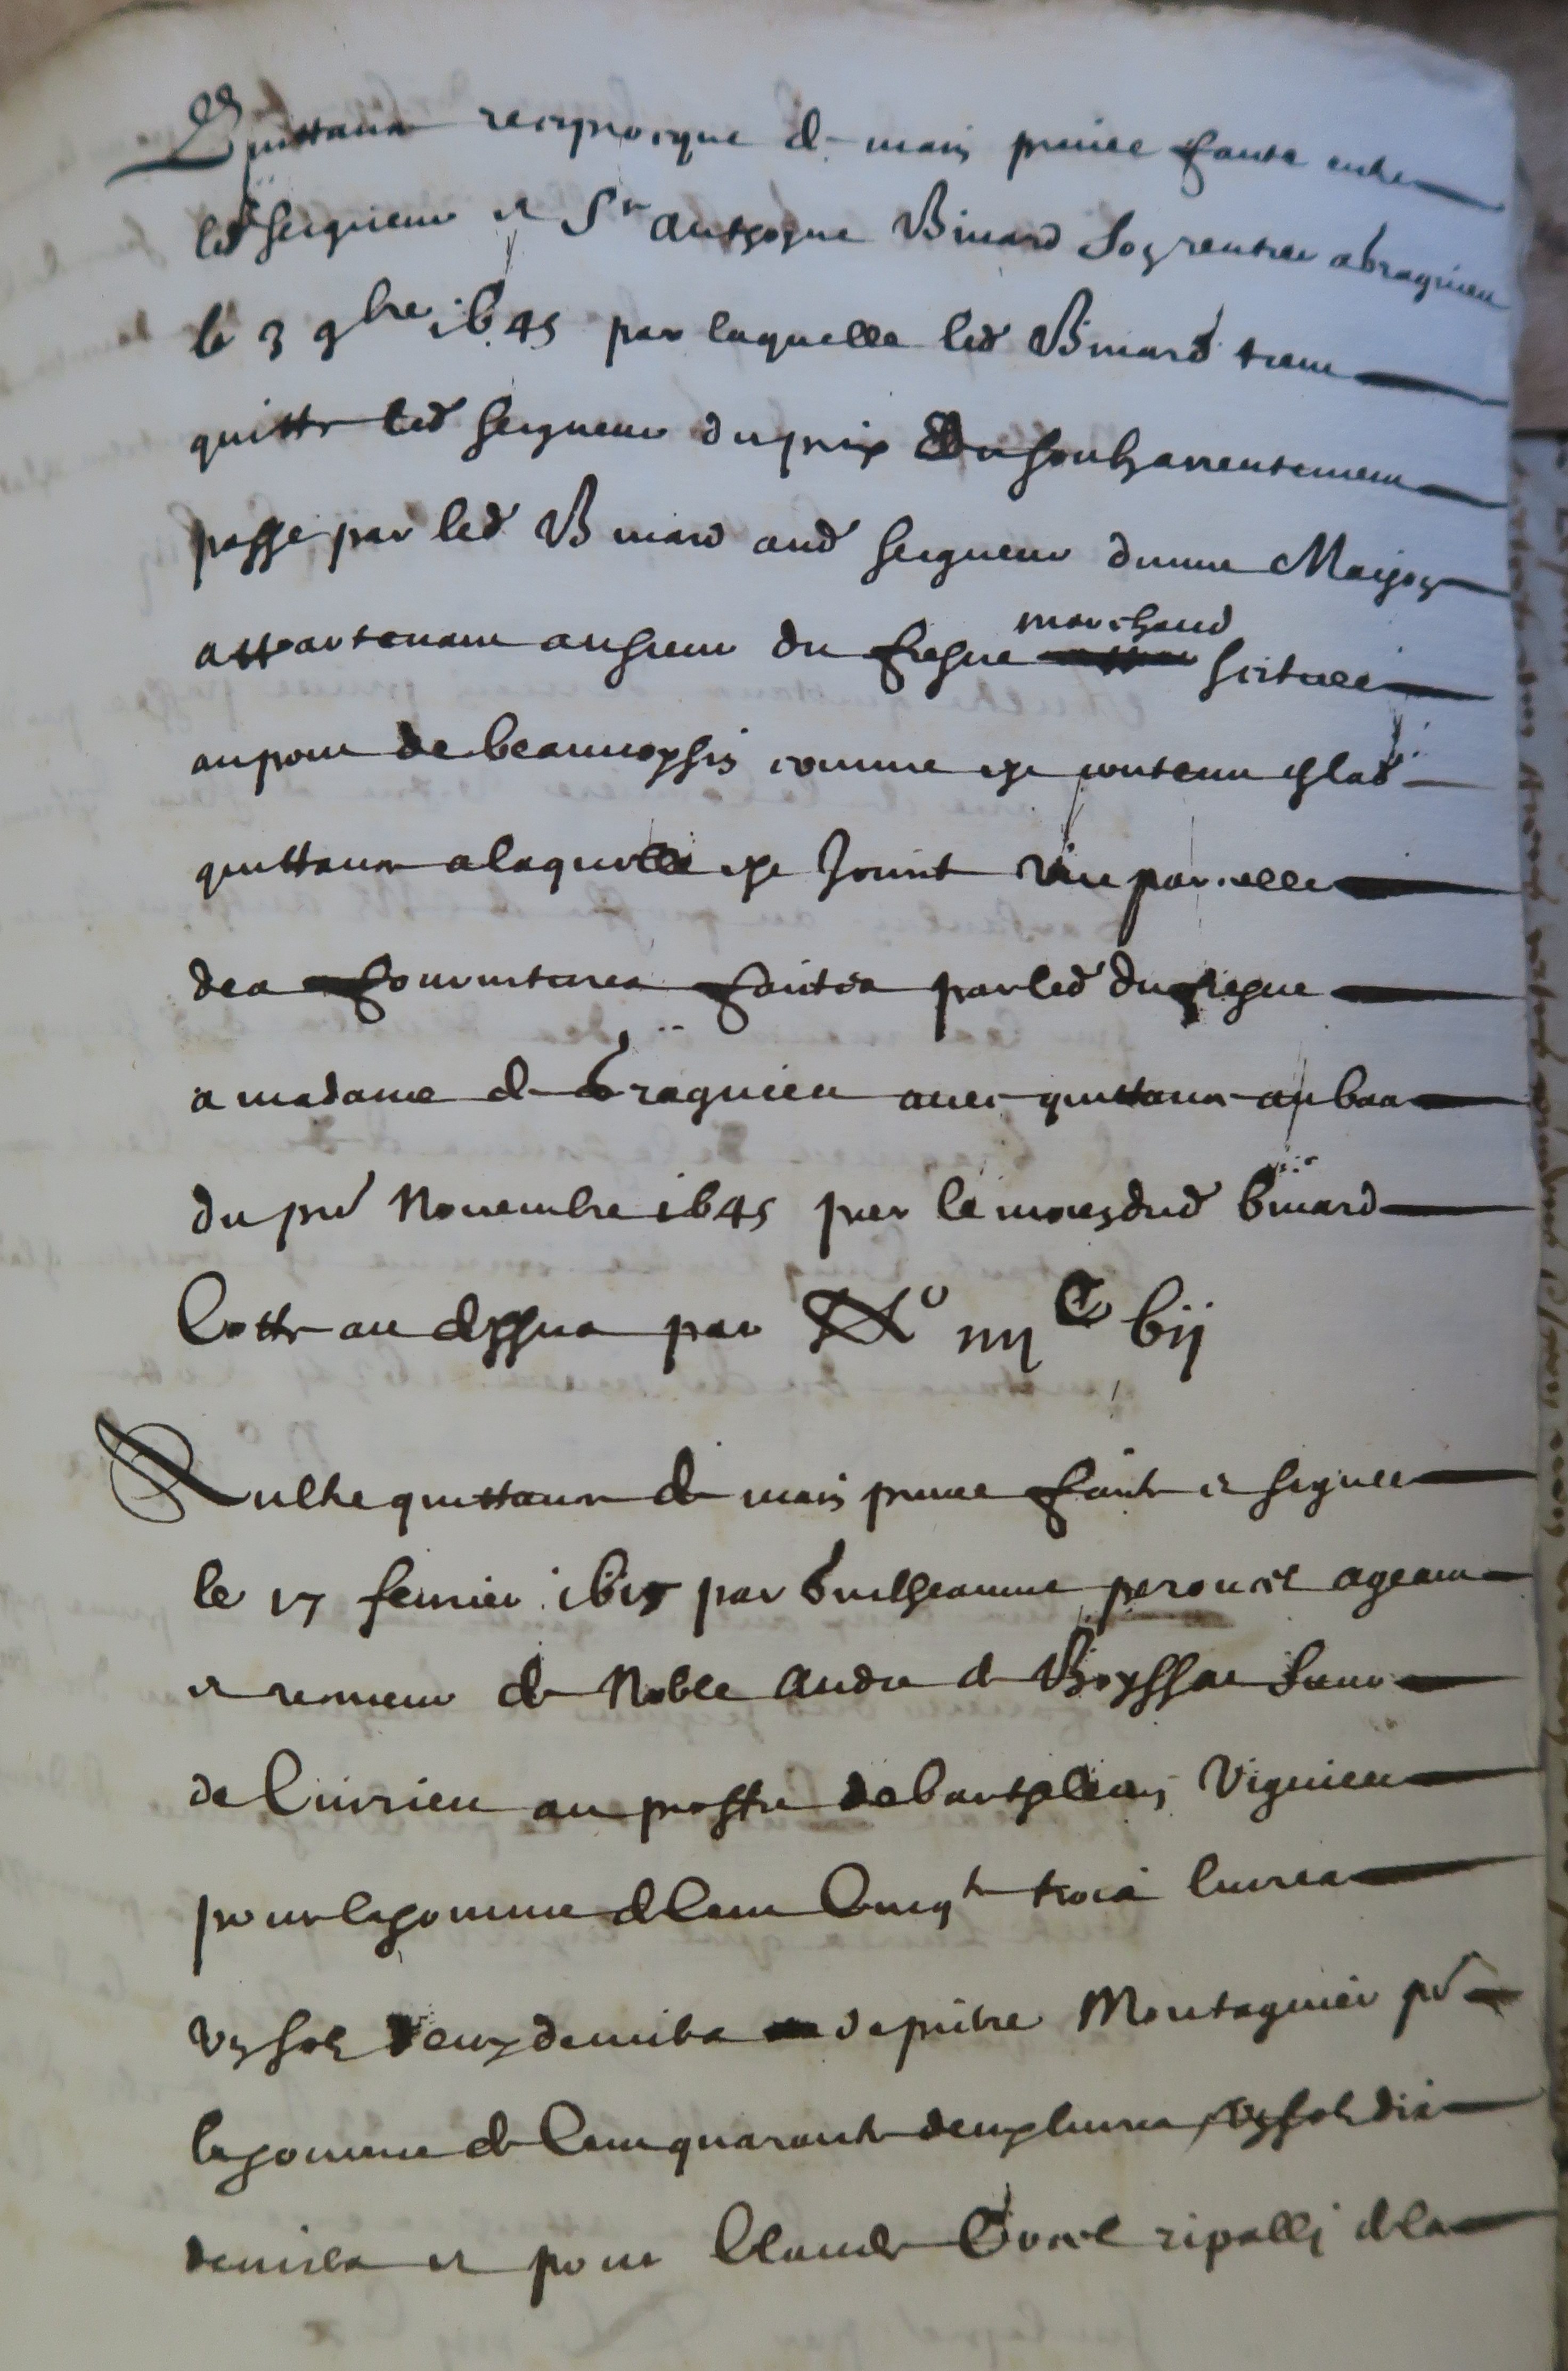 Quittance reciprocque de main privee faicte entre
led seigneur et Sr Anthoyne Binard son rentier a bragnieu
le 3 9bre 1645 par laquelle led Binard tient
quitte led seigneur du prix du soubzarrentement
passe par led Binard aud seigneur dunne Maison
appartenant au sieur du fresne marchand scituee
au pont de beauvoysin comme est contenu en lad
quittance a laquelle est joinct une parcelle
des fournitures faictes par led du fresne
a madame de bragnieu avec quittance au bas
du pr Novembre 1645 par le moien dud binard
Cotte au dessus par No iiii C bij
Aultre quittance de main privee faicte et signee
le 17 febvrier par Guilheaume peroncel ageant
et rentier de Noble Andre de Boyssac sieur
de Cuirieu au proffit de barthelemy Viguier
pour la somme de Cent Cinqte trois livres
un solz deux deniers de pierre Montagnier pr
la somme de Cent quarante deux livres un solz dix
deniers et pour Claude ripalli de la